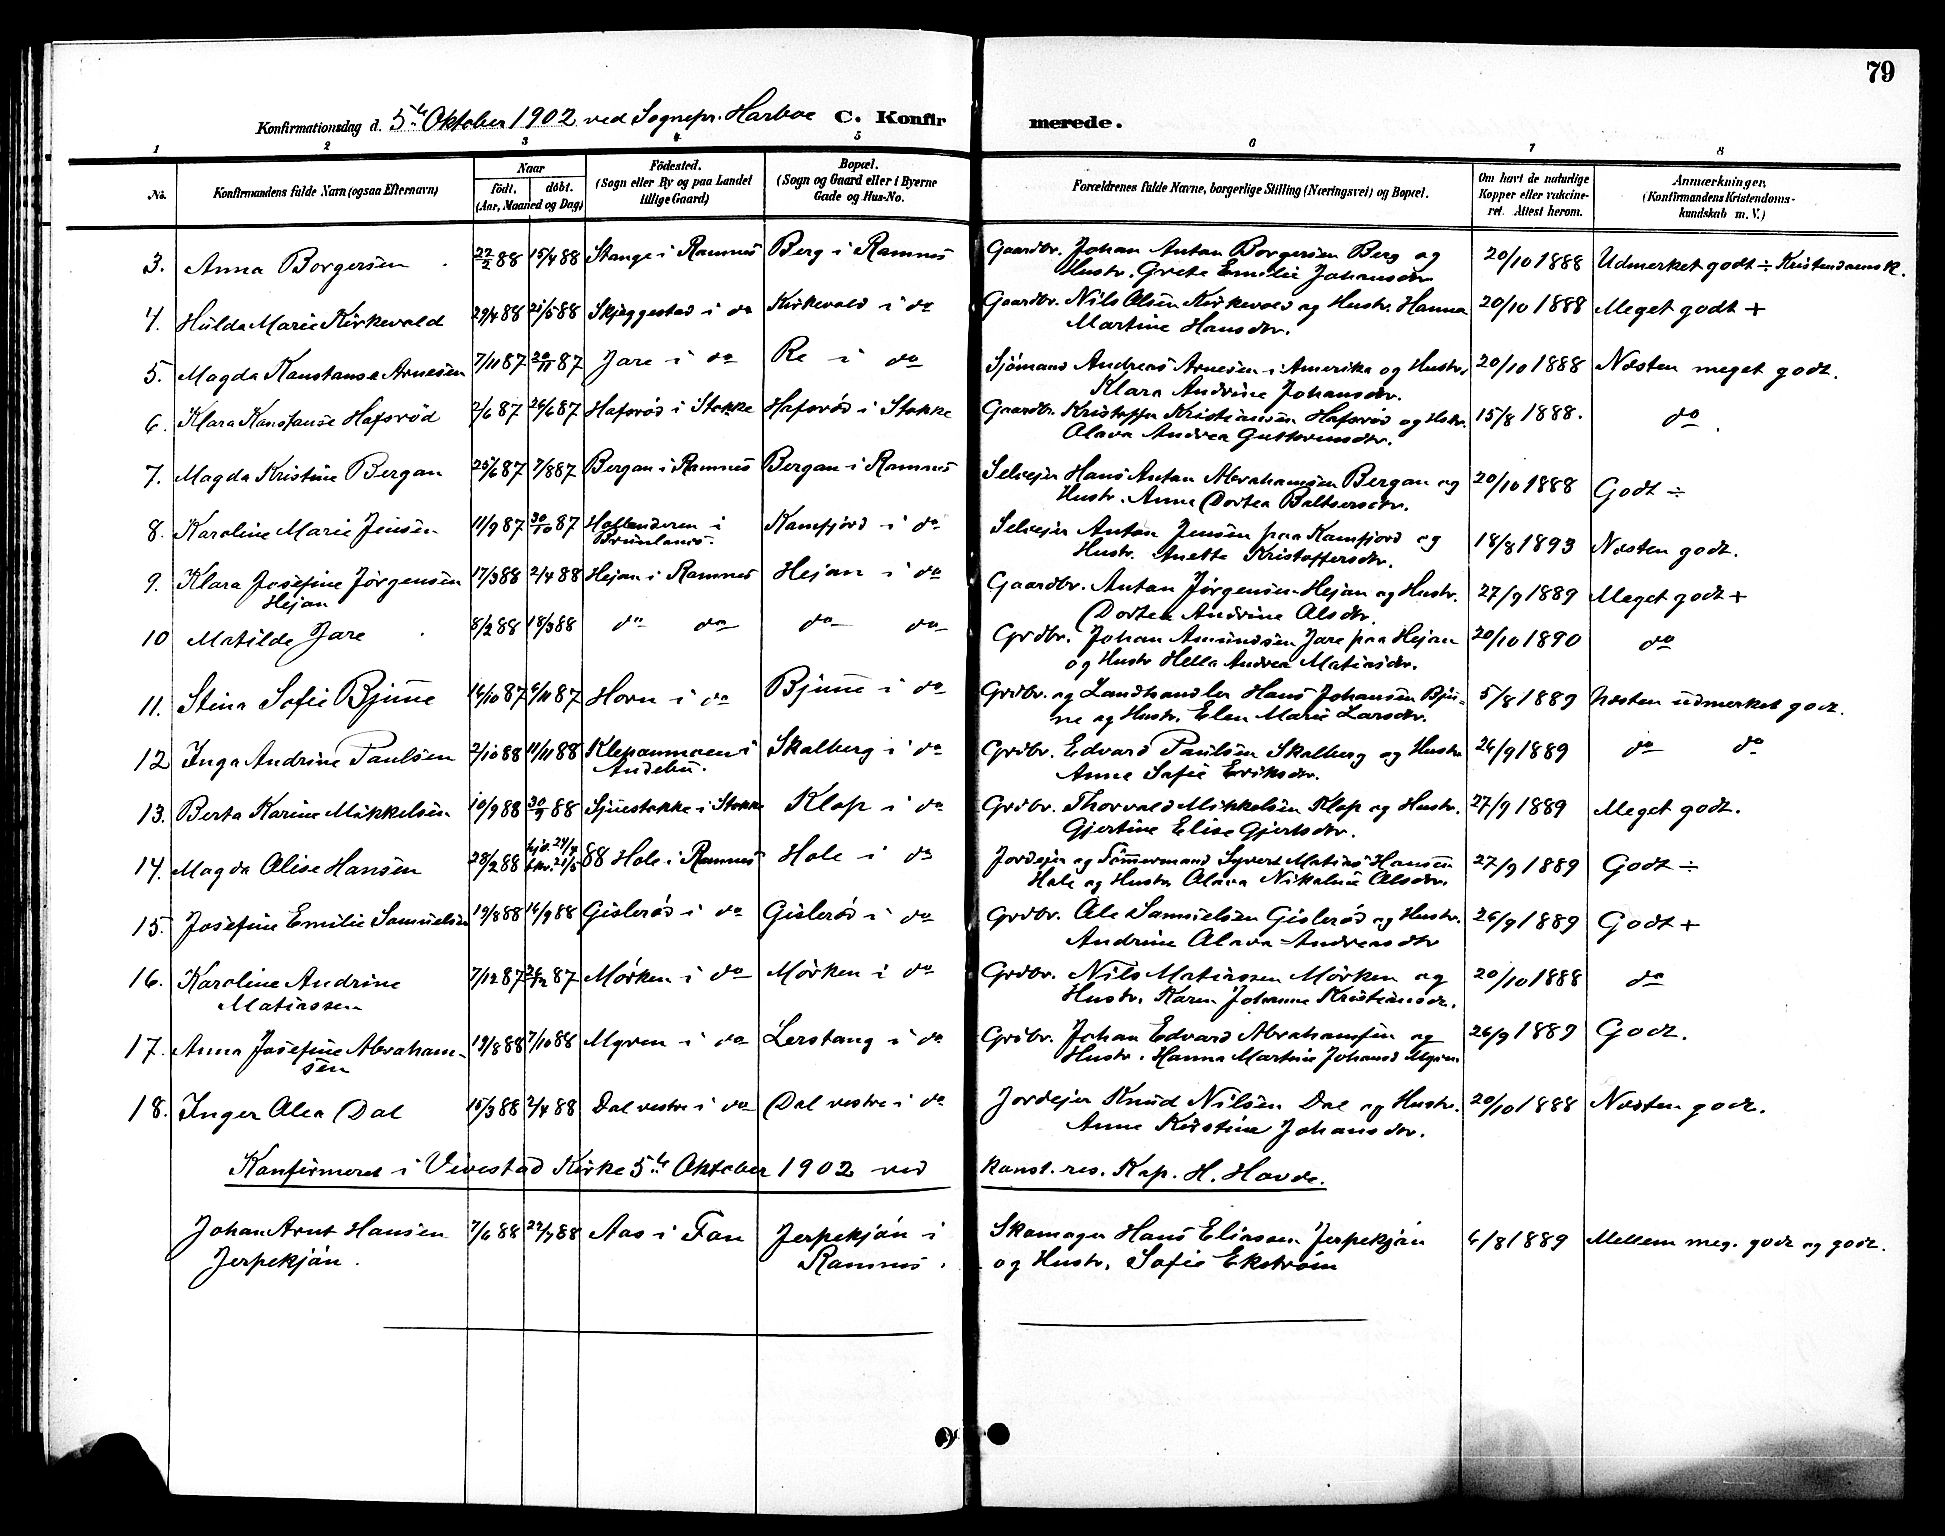 79
Konfirmationsdag d. 5te Oktober 1902 ved Sognepr. Harboe C. Konfirmerede.
1 2 3 4 5 6 7 8
No. Konfirmandens fulde Navn (ogsaa Efternavn) Naar födt. döbt. (Aar, Maaned og Dag) Födested. (Sogn eller By og paa Landet tillige Gaard) Bopæl. (Sogn og Gaard eller i Byerne Gade og Hus-No. Forældrenes fulde Navne, borgerlige Stilling (Næringsvei) og Bopæl. Om havt de naturlige Kopper eller vakcineret. Attest herom. Anmærkninger. (Konfirmandens Kristendomskundskab m. V.)
3. Anna Borgersen 22/2 88 15/4 88 Stange i Ramnes Berg i Ramnes Gaardbr. Johan Anton Borgersen Berg og 20/10 1888 Udmerket godt ÷ Kristendomsk.
Hustr. Grete Emilie Johansdtr.
4. Hulda Marie Kirkevold 29/4 88 21/5 88 Skjeggestad i do Kirkevold i do Gaardbr. Nils Olsen Kirkevold og Hustr. Hanna 20/10 1888 Meget godt +
Martine Hansdtr.
5. Magda Konstanse Arnesen 7/11 87 20/11 87 Jare i do Re i do Sjömand Andreas Arnesen i Amerika og Hustr. 20/10 1888 Næsten meget godt.
Klara Andrine Johansdtr.
6. Klara Konstanse Hafsröd 2/6 87 26/6 87 Hafsröd i Stokke Hafsröd i Stokke Gaardbr. Kristoffer Kristiansen Hafsröd og Hstr. 15/8 1888. do
Olava Andrea Guttormsdtr.
7. Magda Kristine Bergan 25/6 87 7/8 87 Bergan i Ramnes Bergan i Ramnes Selvejer Hans Anton Abrahamsen Bergan og 20/10 1888 Godt ÷
Hustr. Anne Dortea Baltsersdtr.
8. Karoline Marie Jensen 11/9 87 30/10 87 Hollenderen i Brunlanes. Kamfjord i do Selvejer Anton Jensen paa Kamfjord og 18/8 1893 Næsten godt.
Hustr. Anette Kristoffersdtr.
9. Klara Josefine Jörgensen Hejan 17/3 88 2/4 88 Hejan i Ramnes Hejan i do Gaardbr. Anton Jörgensen Hejan og Hustr. 27/9 1889 Meget godt +
Dortea Andrine Olsdtr.
10 Matilde Jare 8/2 88 18/3 88 do do do do Grdbr. Johan Amundsen Jare paa Hejan 20/10 1890 do
og Hustr Hella Andrea Matiasdtr.
11. Stina Sofie Bjune 16/10 87 6/11 87 Horn i do Bjune i do Grdbr. og Landhandler Hans Johansen Bju- 5/8 1889 Næsten udmerket godt.
ne og Hustr. Elen Marie Larsdtr.
12 Inga Andrine Paulsen 2/10 88 11/11 88 Klepanmoen i Andebu. Skalberg i do Grdbr. Edvard Paulsen Skalberg og Hustr 26/9 1889 do do
Anne Sofie Eriksdtr.
13. Berta Karine Mikkelsen 10/9 88 30/9 88 Sjuestokke i Stokke Klop i do Grdbr. Thorvald Mikkelsen Klop og Hustr. 27/9 1889 Meget godt.
Gjertine Elise Gjertsdtr.
14. Magda Olise Hansen 28/2 88 88 Hole i Ramnes Hole i do Jordejer og Tömmermand Syvert Matias Hansen 27/9 1889 Godt ÷
Hole og Hustr Olava Nikoline Olsdtr.
15. Josefine Emilie Samuelsen 19/8 88 16/9 88 Gisleröd i do Gisleröd i do Grdbr. Ole Samuelsen Gisleröd og Hustr. 26/9 1889 Godt +
Andrine Olava Andreasdtr
16. Karoline Andrine Matiassen 7/12 87 26/12 87 Mörken i do Mörken i do Grdbr. Nils Matiassen Mörken og 20/10 1888 do
Hustr. Karen Johanne Kristiansdtr.
17. Anna Josefine Abrahamsen 19/8 88 7/10 88 Myren i do Lerstang i do Grdbr. Johan Edvard Abrahamsen og 26/9 1889 Godt.
Hustr. Hanna Martine Johansd Myren
18. Inger Olea Dal 15/3 88 2/4 88 Dal vestre i do Dal vestre i do Jordejer Knud Nilsen Dal og Hustr. 20/10 1888 Næsten godt.
Anne Kirstine Johansdtr.
Konfirmeret i Vivestad Kirke 5te Oktober 1902 ved konst. res. Kap. H. Hovde.
Johan Arnt Hansen Jerpekjön. 7/6 88 22/7 88 Aas i Fon Jerpekjön i Ramnes. Skomager Hans Eliassen Jerpekjön 6/8 1889 Mellem meg. godt og godt.
og Hustr. Sofie Ekström